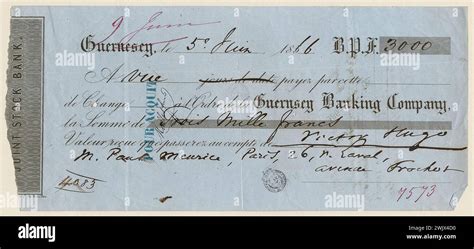 9 Juin
Guernesey, le 5 Juin 1866 B.P.F. 3000
A vue payez par cette
de Change à l'Ordre Guernsey Banking Company,
la Somme de trois Mille francs
Valeur reçue que passerez au compte de Victor Hugo
M. Paul Meurice, Paris, 26, r. Laval,
avenue Frochot
7573
JOINT STOCK BANK.
POUR ACQUIT
alamy
Image ID: 2WJX4D0
www.alamy.com